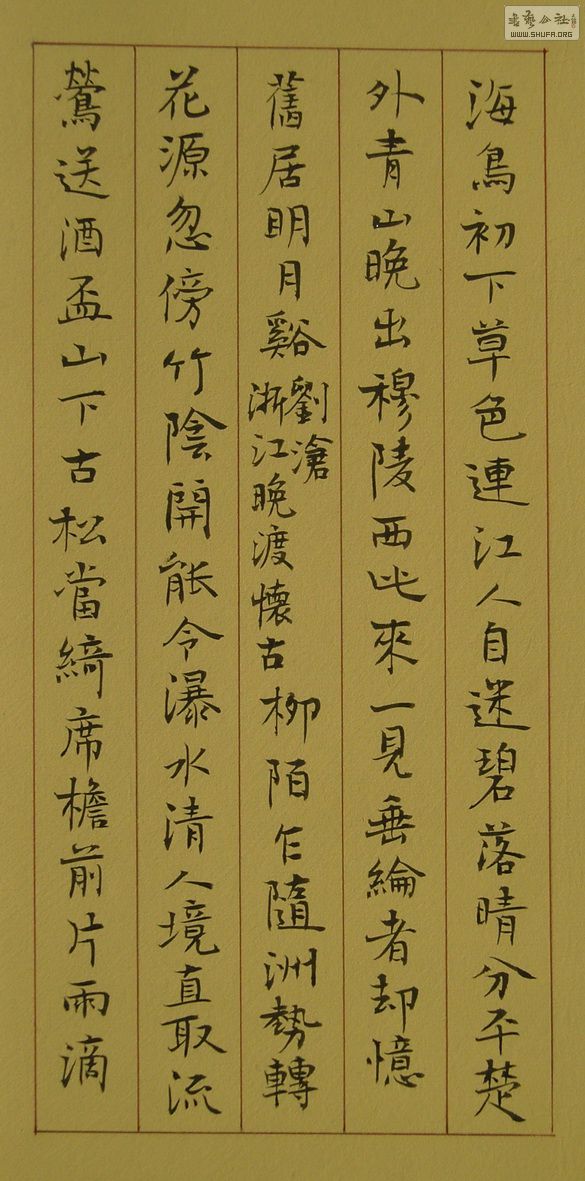 書藝公社
WWW.SHUFA.ORG
海鳥初下草色連江人自迷碧落晴分平楚
外青山晚出穆陵西此來一見垂綸者却憶
舊居明月谿劉滄浙江晚渡懷古柳陌乍隨洲勢轉
花源忽傍竹陰開能令瀑水清人境直取流
鶯送酒盃山下古松當綺席檐前片雨滴